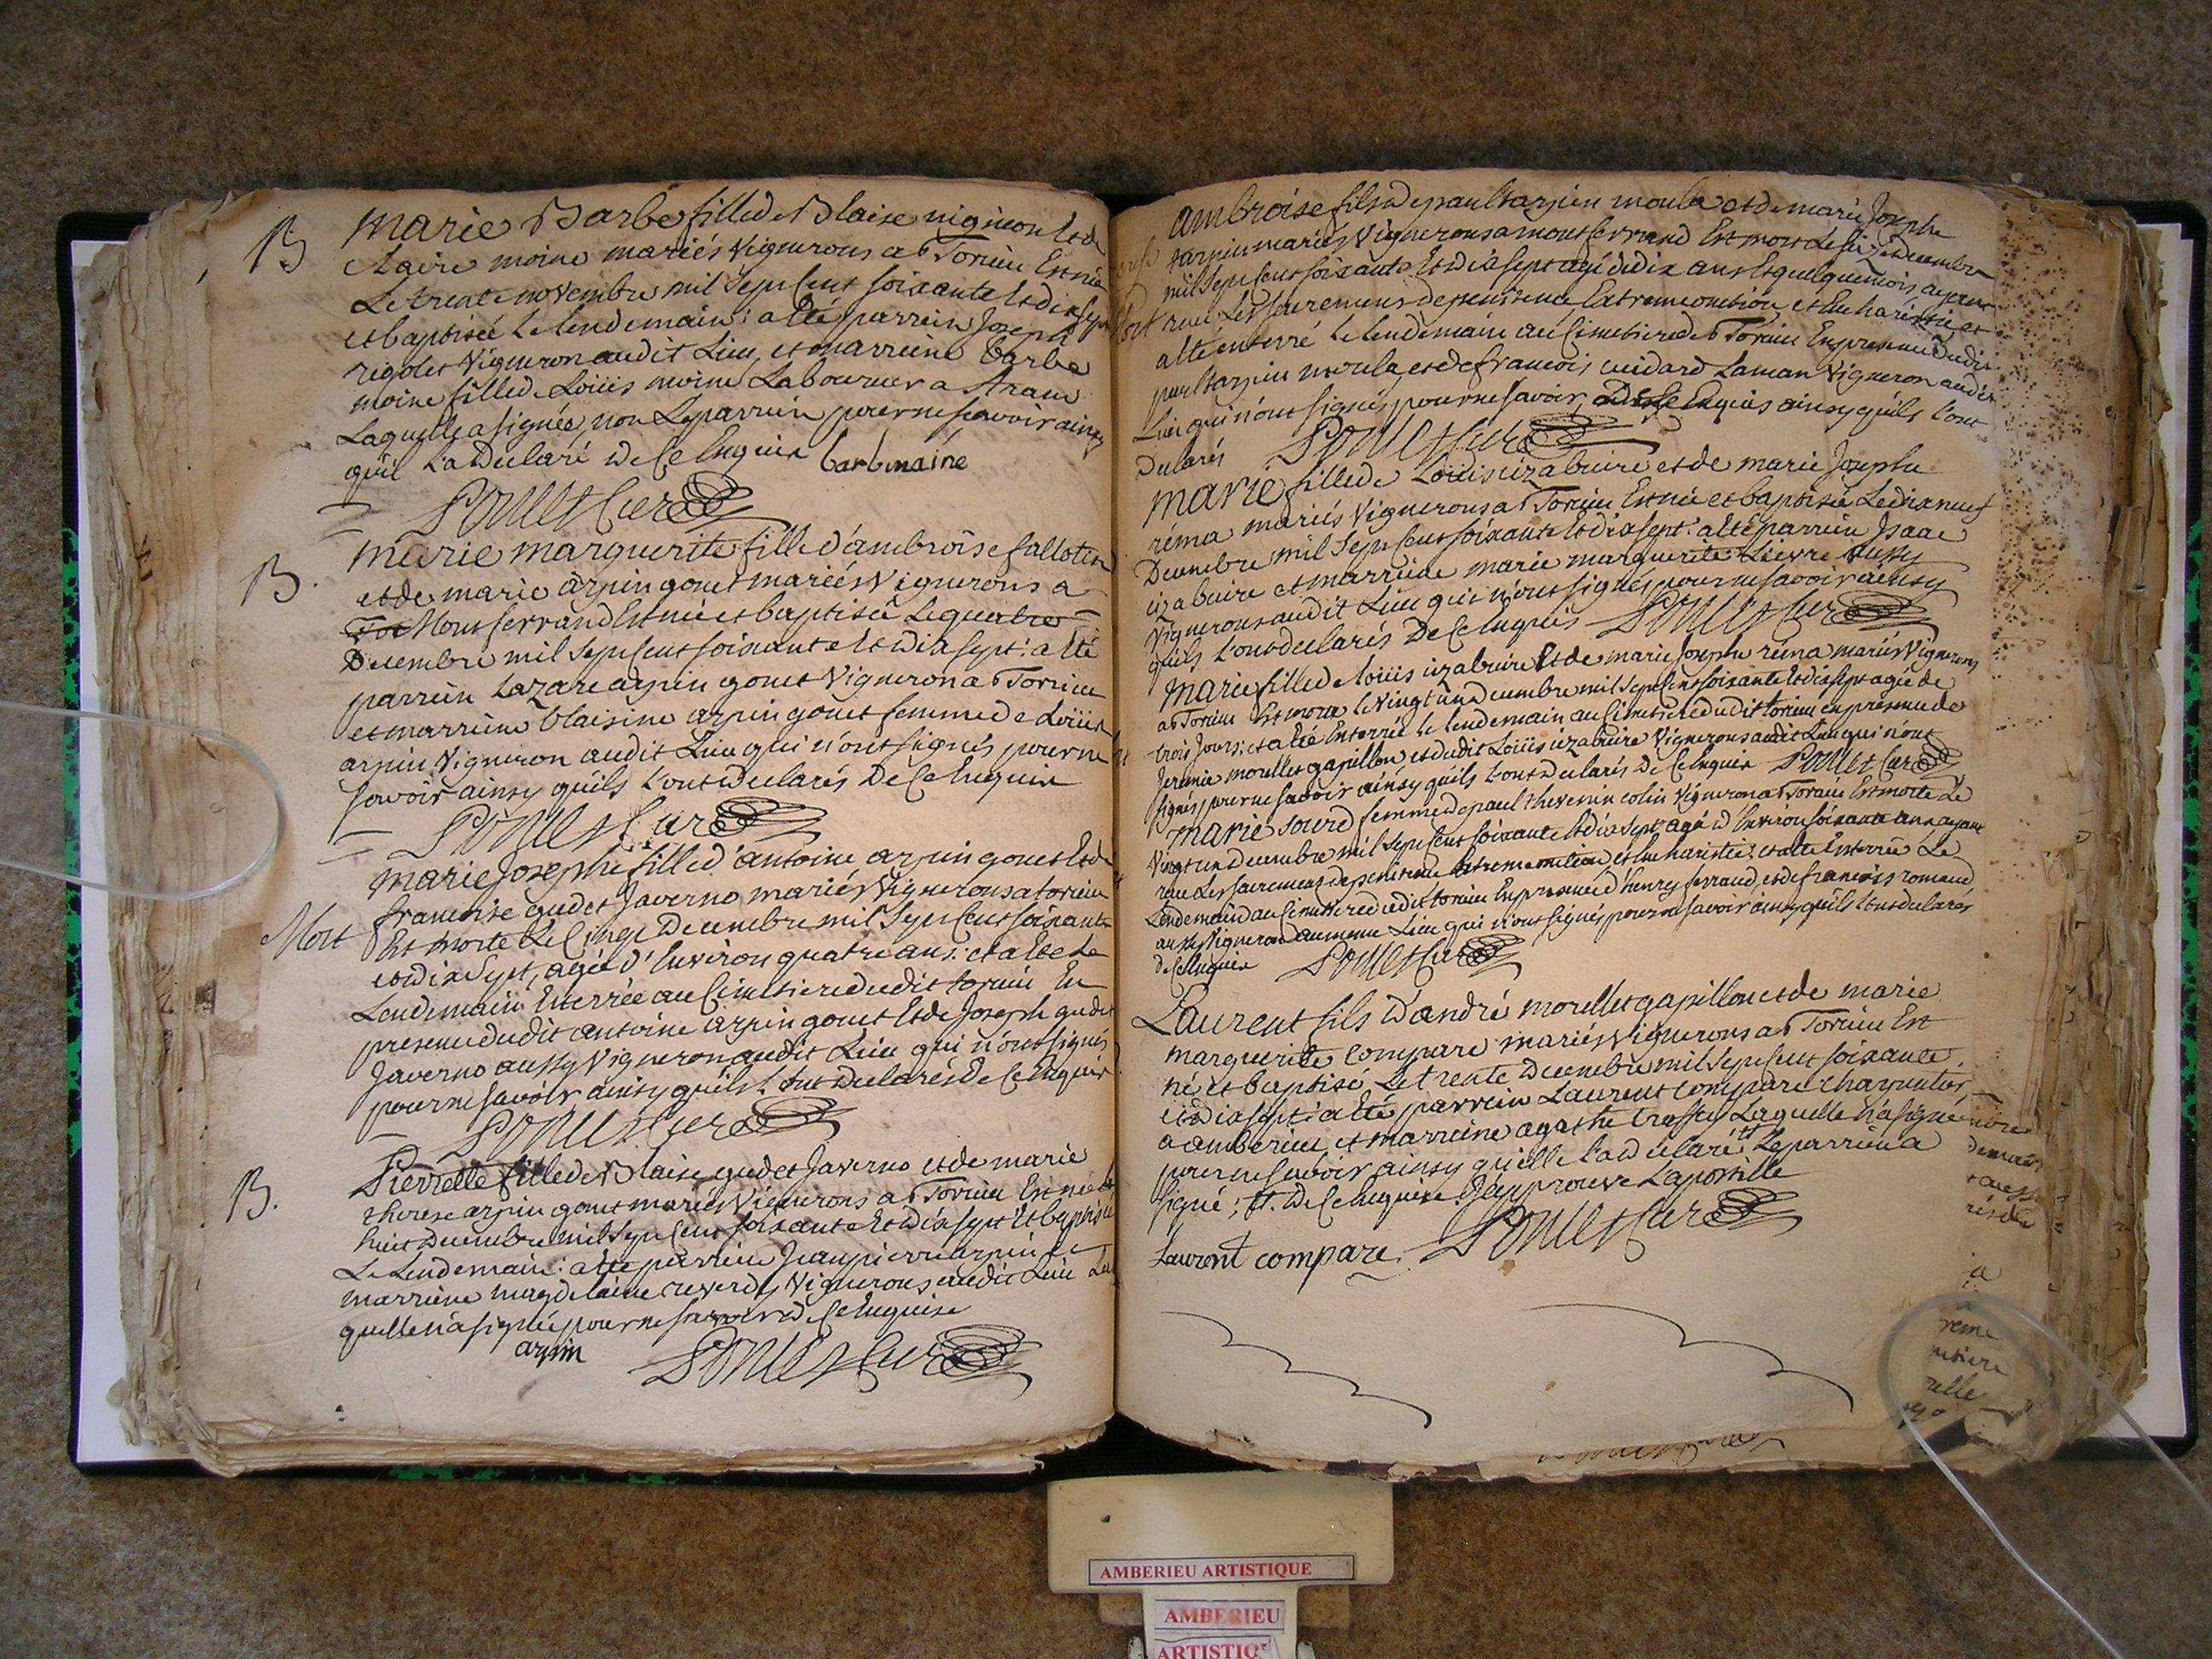 B
Marie Barbe fille de Blaise nigueon Et de
Claire moine mariés Vignerons a Torcieu Est née
Le trente novembre mil Sept Cent soixante Et dix sept
et baptisée Le lendemain : a Eté parrein Joseph
rigolet Vigneron audit Lieu, et marreine barbe
moine fille de Loüis moine Laboureur a
Laquelle a signée, non Le parrein pour ne scavoir ainsy
qu'il L'a Declaré De Ce Enquis barbe maine
Ponet Curé
B.
Marie marguerite fille d'ambroise fallotin
et de marie arpin gonet mariés Vignerons a
Tor Montferrand Est née et baptisée Le quatre
Decembre mil Sept Cent soixante Et Dix sept : a Eté
parrein Lazare arpin gonet Vigneron a Torcieu
et marreine blaisine arpin gonet femme de Loüis
arpin Vigneron audit Lieu qui n'ont signés pour ne
savoir ainsy qu'ils L'ont Declarés De Ce Enquis
Ponet Curé
Mort
Marie Josephe fille d'antoine arpin gonet Et de
francoise gudet Javerno mariés Vignerons a torcieu
Est morte Le Cinq Decembre mil Sept Cent soixante
et dix Sept, agée d'Environ quatre ans : et a Eté Le
Lendemain Enterrée au Cimetiere dudit torcieu En
presence dudit antoine arpin gonet Et de Joseph gudet
Javerno aussy Vigneron audit Lieu qui n'ont signés
pour ne savoir ainsy qu'ils L'ont Declarés De Ce Enquis
Ponet Curé
B.
Pierrette fille de Blaise gudet Javerno et de marie
therese arpin gonet mariés Vignerons a Torcieu Est née Le
huit Decembre mil Sept Cent soixante Et Dix sept Et baptisée
Le Lendemain : a Eté parrein Jean pierre arpin et
marreine magdelaine reverdy Vignerons audit Lieu La
quelle n'a signée pour ne savoir De Ce Enquise
arpin
Ponet Curé
Ambroise fils de paul tarpin moula et de marie Josephe
tarpin mariés Vignerons a montferrand Est mort Le six Decembre
mil Sept Cent soixante Et Dix sept agé de dix ans Et quelque mois ayant
recu Les sacremens de penitence Extremeonction, et Eucharistie et
a Eté enterré Le lendemain au Cimetiere de Torcieu En presence dudit
paul tarpin moula, et de francois cuidard Laman Vigneron audit
Lieu qui n'ont signés pour ne savoir, De Ce Enquis ainsy qu'ils L'ont
Declarés
Ponet Curé
Marie fille de Loüis izabuire et de marie Josephe
réma mariés Vignerons a Torcieu Est née et baptisée Le dix neuf
Decembre mil Sept Cent soixante Et dix sept : a Eté parrein Isaac
izabuire et marreine marie marguerite Lievre aussy
Vignerons audit Lieu qui n'ont signés pour ne savoir ainsy
qu'ils L'ont declarés De Ce Enquis Ponet Curé
Marie fille de loüis izabuire Et de marie Josephe réma mariés Vignerons
a Torcieu Est morte le Vingt un Decembre mil Sept Cent soixante Et dix sept agée de
trois Jours : et a Eté Enterrée Le lendemain au Cimetiere dudit torcieu en presence de
Jeremie morellet gapillon et dudit Loüis izabuire Vignerons audit Lieu qui n'ont
signés pour ne savoir ainsy qu'ils L'ont Declarés De Ce Enquis Ponet Curé
Marie soured femme de paul thevenin colin Vigneron a Torcieu Est morte Le
Vingt un Decembre mil Sept Cent soixante Et dix Sept agée d'Environ soixante ans ayant
recue Les sacremens de penitence Extremeonction et Eucharistie : et a Eté Enterrée Le
Lendemain au Cimetiere dudit torcieu En presence d'henry ferraud, et de francois romand
aussy Vigneron au meme Lieu qui n'ont signés pour ne savoir ainsy qu'ils L'ont declarés
De Ce Enquis Ponet Curé
Laurent fils d'andré morellet gapillon et de marie
marguerite Compare mariés Vignerons a Torcieu Est
né et baptisé Le trente Decembre mil Sept Cent soixante
et dix sept : a Eté parrein Laurent Compare charpentier
a amberieu et marreine agathe trosset Laquelle n'a signée
pour ne savoir ainsy qu'elle L'a declaré Le parrein a
signé ; De Ce Enquise J'approuve L'apostille
Laurent compare Ponet Curé
AMBERIEU ARTISTIQUE
AMBERIEU
ARTISTIQ